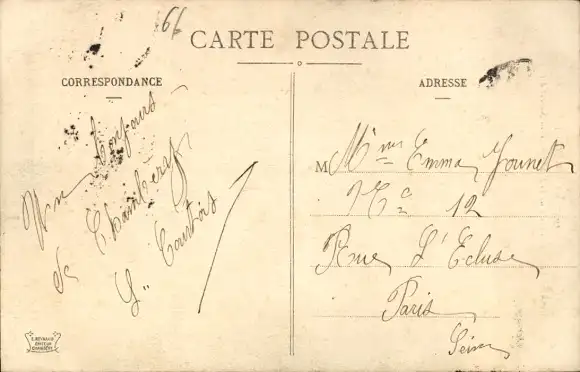 66
CARTE POSTALE
CORRESPONDANCE
Un bonjours
de Chambery
L. Courtois
ADRESSE
M Mme Emma Jounet
No 12
Rue L'Ecluse
Paris
Seine
CHAMBERY